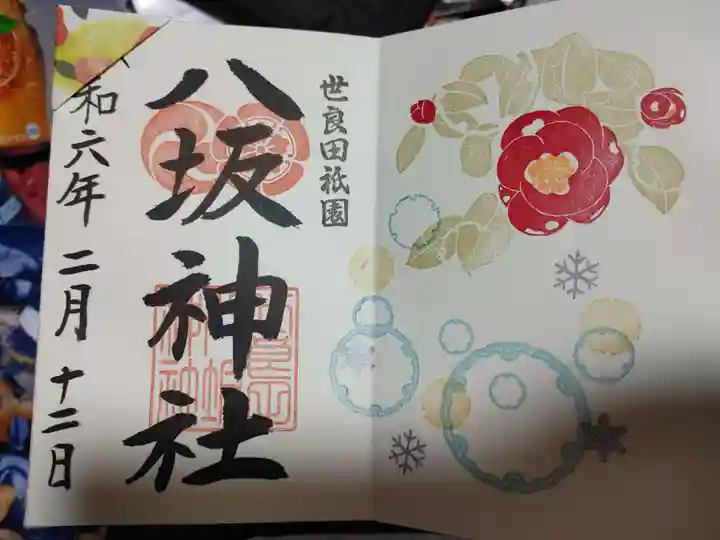 世良田祇園
八坂神社
和六年 二月 十二日